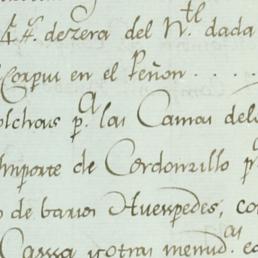 4 @. de zera del N.tl dada
Corpus en el Peñon . . . .
olchous p.a las Camas del
Importe de Cordonzillo p.a
o de barios Huespedes, co
Cassa y otras menud.as